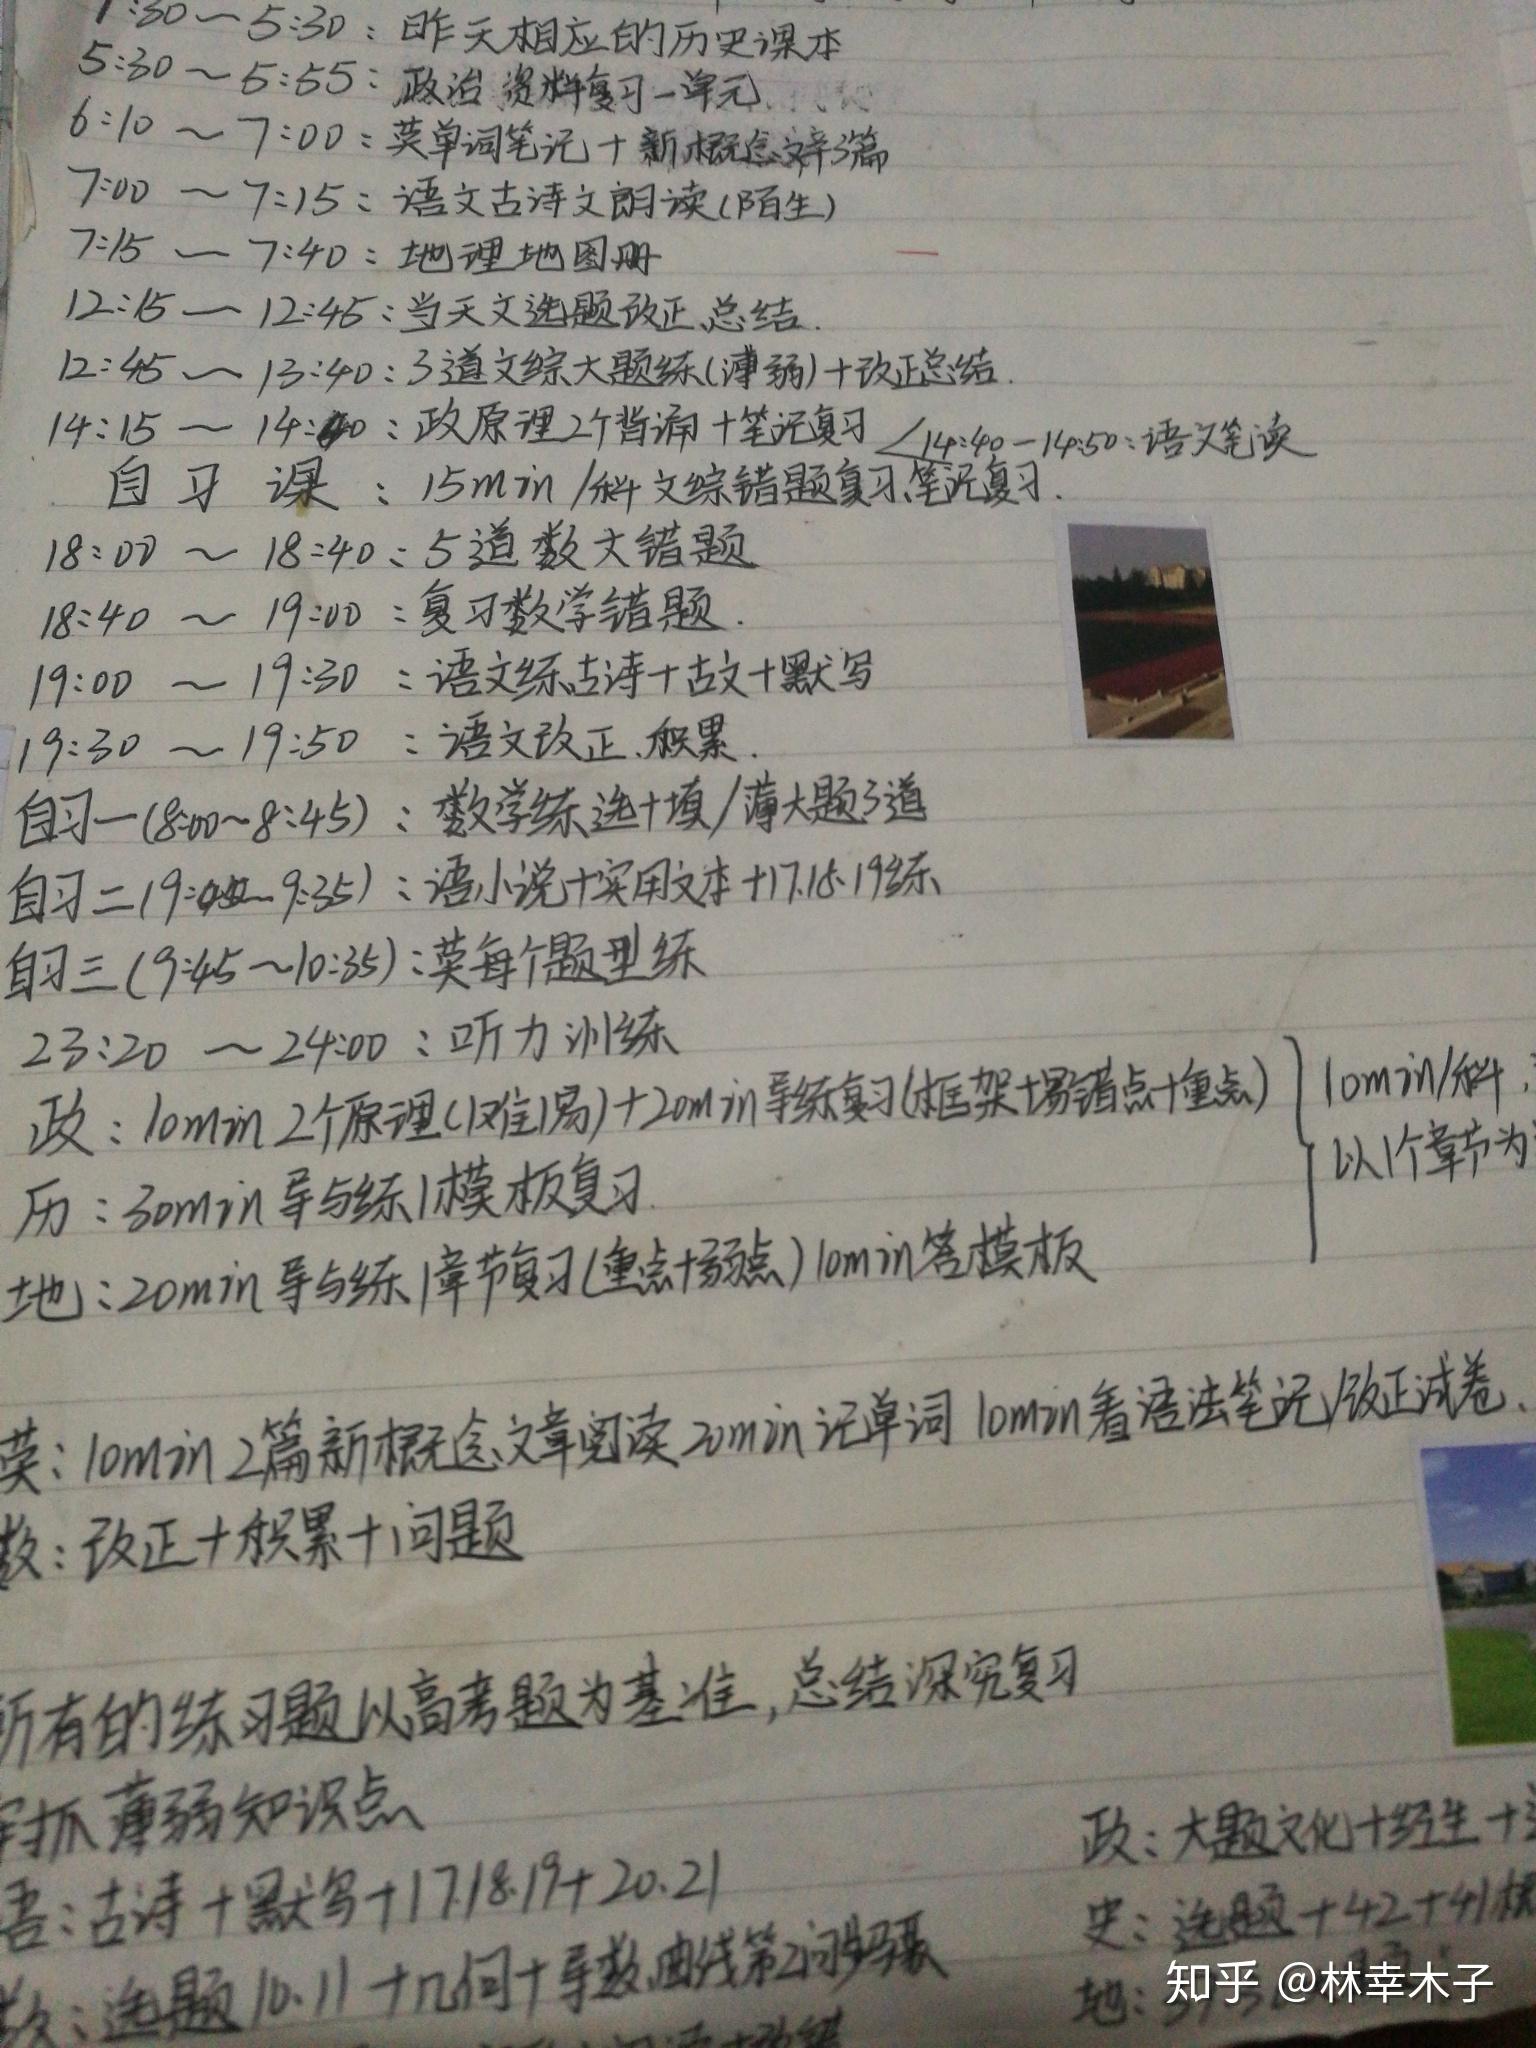 :30～5:30：昨天相应的历史课本
5:30～5:55：政治资料复习一单元
6:10～7:00：英单词笔记+新概念文章3篇
7:00～7:15：语文古诗文朗读(陌生)
7:15～7:40：地理地图册
12:15～12:45：当天文选题改正、总结.
12:45～13:40：3道文综大题练(薄弱)+改正总结.
14:15～14:40：政原理2个背诵+笔记复习 <14:40-14:50：语文笔读
自习课：15min/科文综错题复习、笔记复习.
18:00～18:40：5道数大错题
18:40～19:00：复习数学错题.
19:00～19:30：语文练古诗+古文+默写
19:30～19:50：语文改正、积累.
自习一(8:00～8:45)：数学练选+填/薄大题3道
自习二(9:00～9:35)：语小说+实用文本+17.18.19练
自习三(9:45～10:35)：英每个题型练
23:20～24:00：听力训练
政：10min 2个原理(1难1易)+20min导练复习(框架+易错点+重点)
10min/科,
以1个章节为
历：30min导与练1模板复习.
地：20min导与练1章节复习(重点+弱点)10min答模板
英：10min 2篇新概念文章阅读 20min记单词 10min看语法笔记/改正试卷.
数：改正+积累+问题
所有的练习题以高考题为基准,总结深究复习
抓薄弱知识点
语：古诗+默写+17.18.19+20.21
数：选题10.11+几何+导数、曲线第2问步骤
政：大题文化+经生+
史：选题+42+41
地：
知乎 @林幸木子